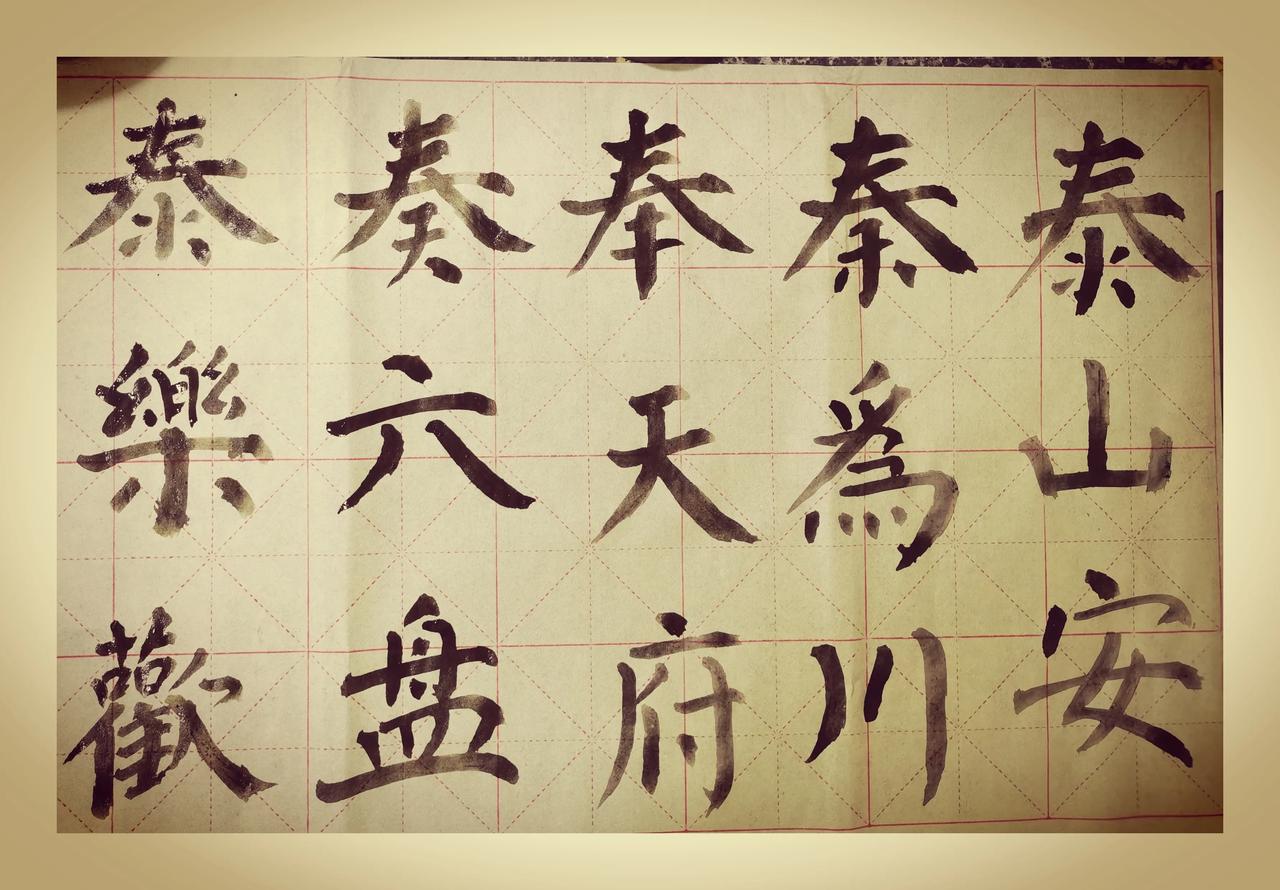 泰山安
秦爲川
奉天府
奏六盘
泰樂歡